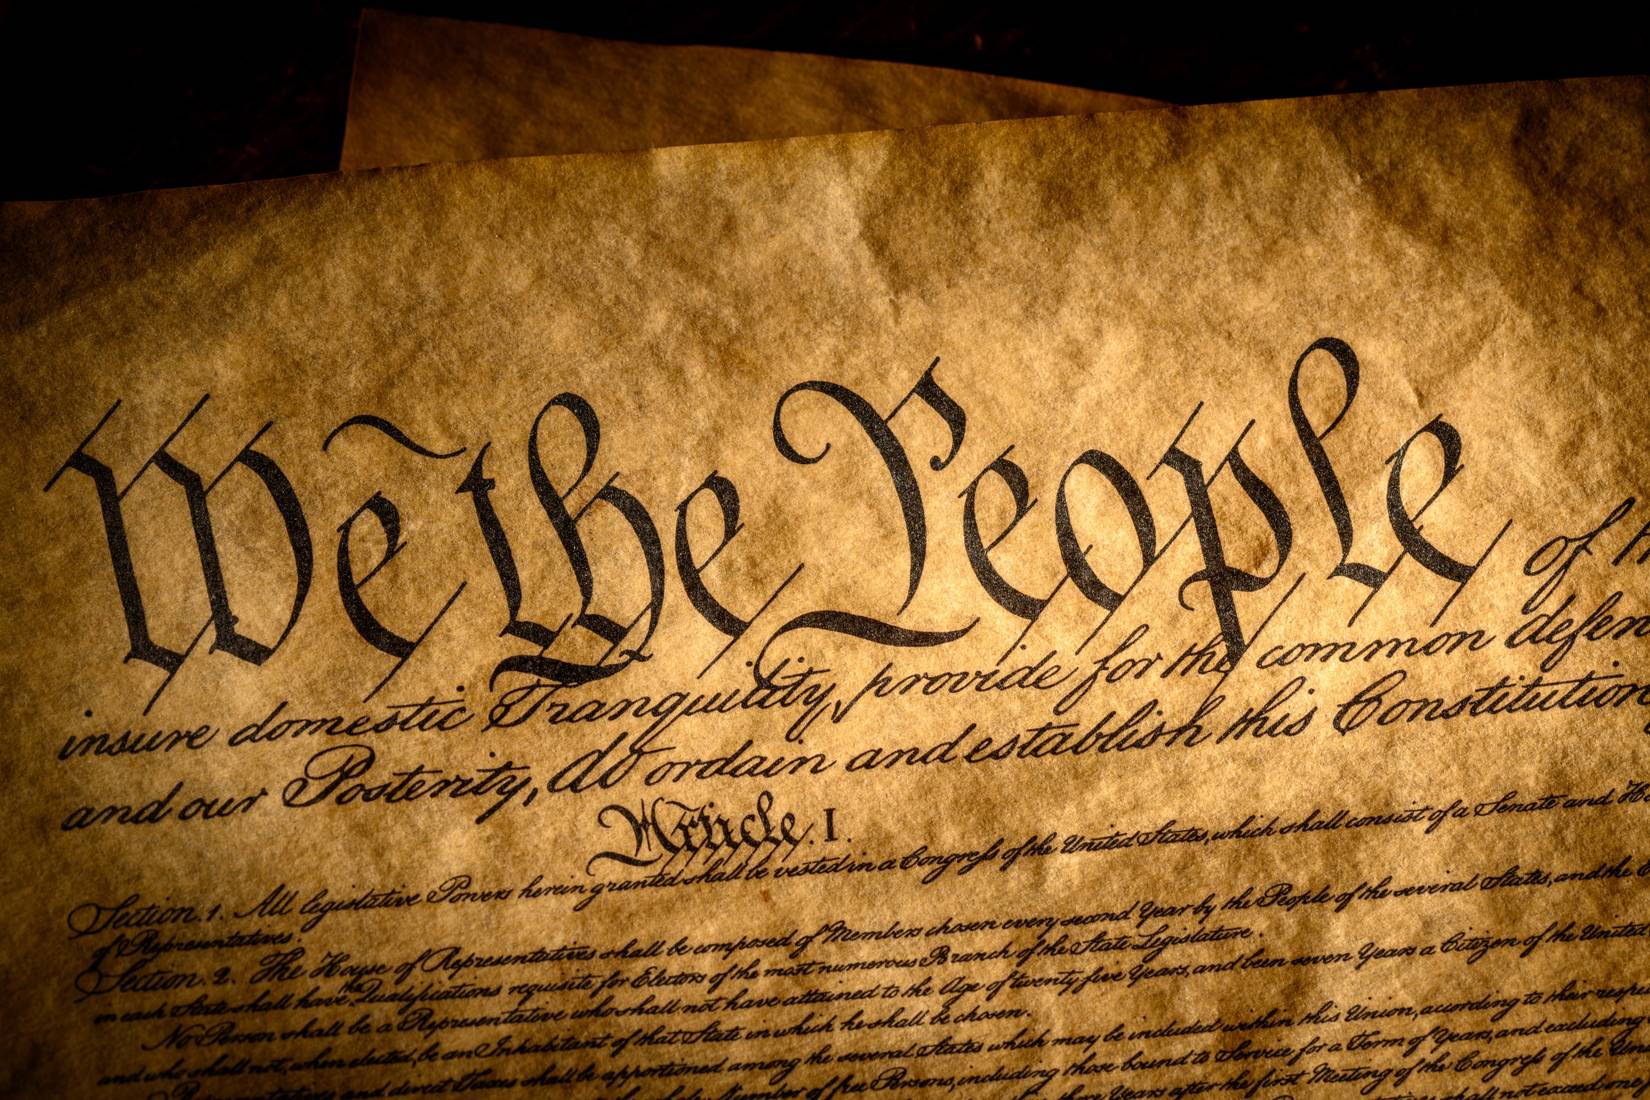 We the People of
insure domestic Tranquility, provide for the common defen
and our Posterity, do ordain and establish this Constitution
Article. I.
Section. 1. All legislative Powers herein granted shall be vested in a Congress of the United States, which shall consist of a Senate and Ho
of Representatives.
Section. 2. The House of Representatives shall be composed of Members chosen every second Year by the People of the several States, and the
in each State shall have the Qualifications requisite for Electors of the most numerous Branch of the State Legislature.
No Person shall be a Representative who shall not have attained to the Age of twenty five Years, and been seven Years a Citizen of the United
and who shall not, when elected, be an Inhabitant of that State in which he shall be chosen.
Representatives and direct Taxes shall be apportioned among the several States which may be included within this Union, acording to their respe
Number of free Persons, including those bound to Service for a Term of Years, and excluding
Years after the first Meeting of the Congress of the
shall not exceed one f